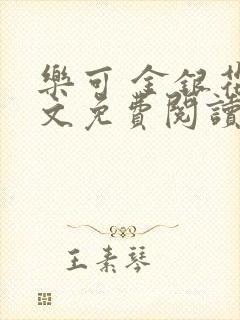 樂可 金銀花
文免費閱讀
王素琴